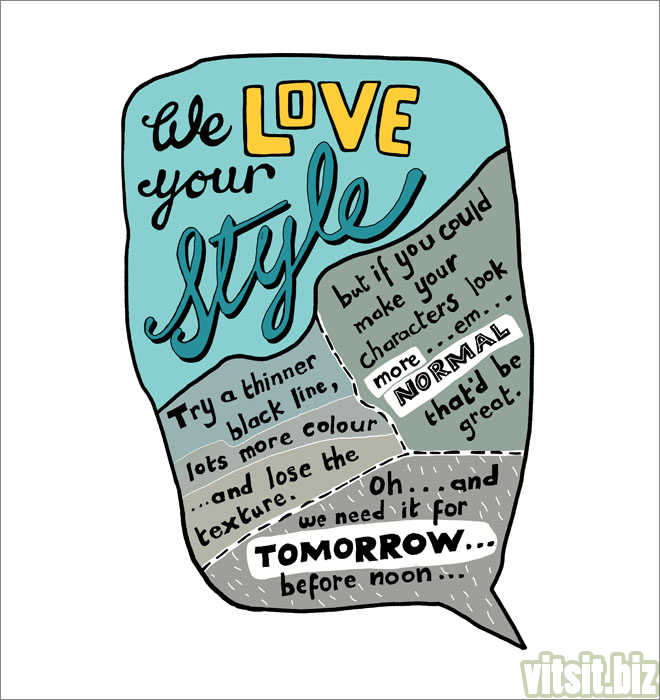 We LOVE
your
Style
but if you could
make your
characters look
more ... em ...
NORMAL
that'd be
great.
Try a thinner
black line,
lots more colour
...and lose the
texture.
Oh...and
we need it for
TOMORROW...
before noon...
vitsit.biz